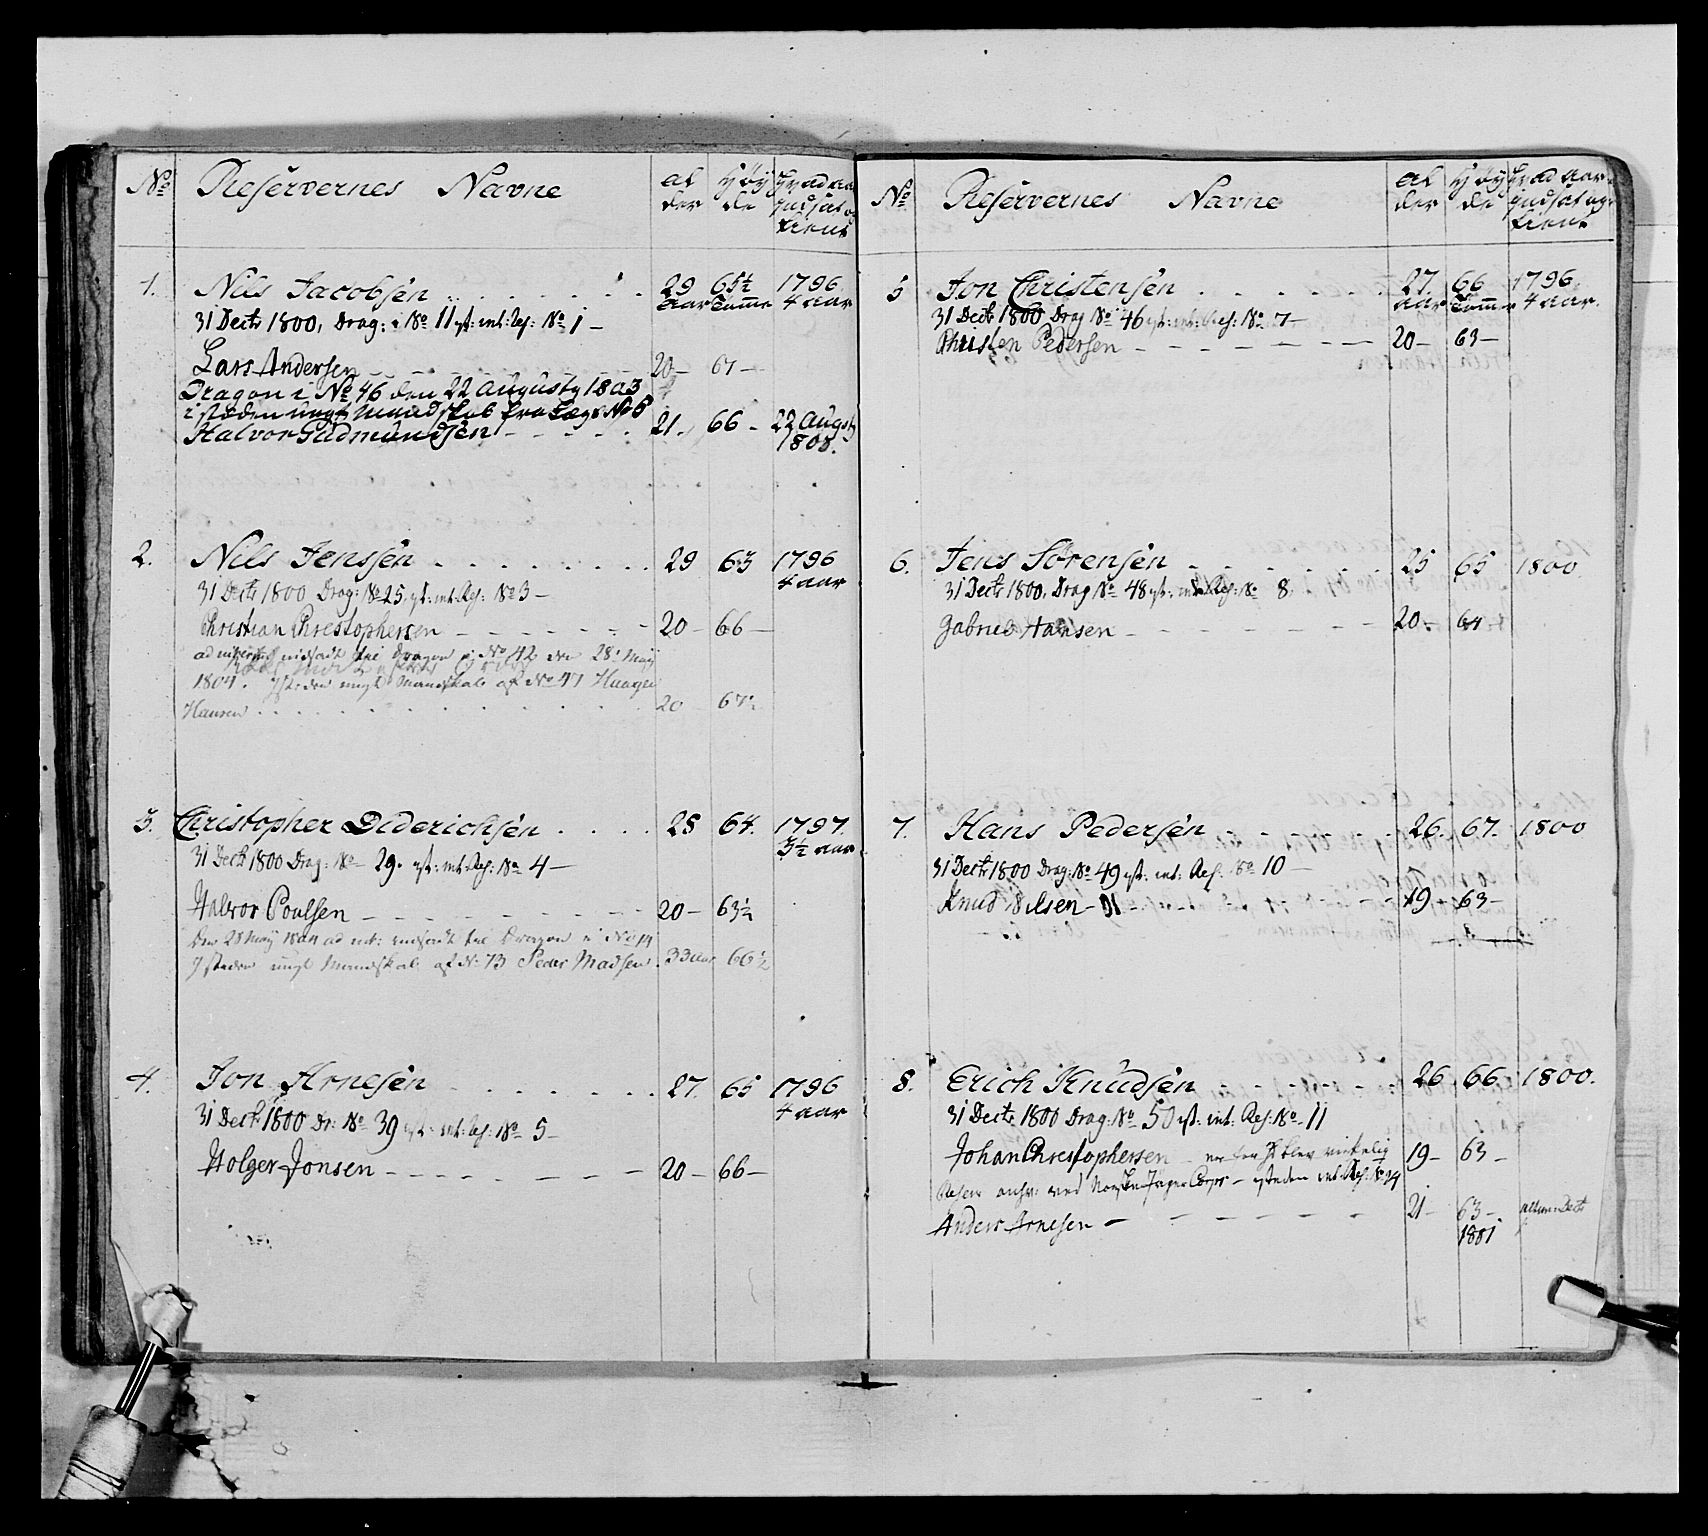 No Reservernes Navne al der Høy de Hvad aar indsat og tient
1. Nils Jacobsen 29 aar 65½ Tomme 1796 4 aar
31 Decbr 1800, Drag: i No 11 ist: int: Res: No 1 —
Lars Andersen 20 — 67 —
Dragon i No 46 den 22 Augusty 1803
i steden ungt mandskab fra Lægs No 5
Halvor Gudmundsen 21. 66 - 22 Augsty 1803.
2. Nils Jenssen 29 63 1796 4 aar
31 Decbr 1800 Drag: No 25. ist: int: Res: No 3 —
Christian Christophersen 20 — 66 —
ad interim indsadt til Dragon i No 42 den 28 May
1804. Isteden ungt Mandskab af No 47 Haagen
Hansen 20 67½
3. Christopher Diderichsen 28 64. 1797. 3½ aar
31 Decbr 1800 Drag: No 29. ist: int: Res: No 4 —
Halvor Poulsen 20 — 63½
Den 28 May 1804 ad int: indsadt til Dragon i No 14
Isteden ungt Mandskab af No 73 Peder Madsen 33 aar 66½
4. Jon Arnesen 27. 65 1796 4 aar
31 Decbr 1800 Dr: No 39 ist: int: Res: No 5 —
Holger Jonsen 20 — 66 —
No Reservernes Navne al der Høy de Hvad aar indsat og tient
5 Jon Christensen 27. aar 66 Tomme 1796 4 aar.
31 Decbr 1800 Drag No 46 ist: int: Res: No 7 —
Christen Pedersen 20 — 63 —
6. Jens Sørensen 25 65 1800.
31 Decbr 1800. Drag No 48 ist: int: Res: No 8.
Gabriel Hansen 20 — 64
7. Hans Pedersen 26. 67. 1800
31 Decbr 1800 Drag: No 49 ist: int: Res: No 10 —
Knud Nilsen 19 — 63 —
8. Erich Knudsen 26 66. 1800.
31 Decbr 1800 Drag: No 50 ist: int: Res: No 11
Johan Christophersen 19 — 63 —
Reserv ved Norske Jæger Corps — isteden int: Res: No 24
Anders Arnesen 21 — 63 — 1801